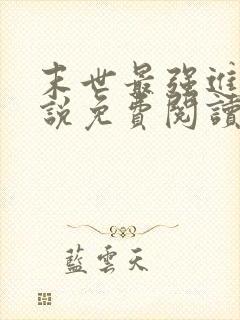 末世最强進
說免費閱讀
藍雲天